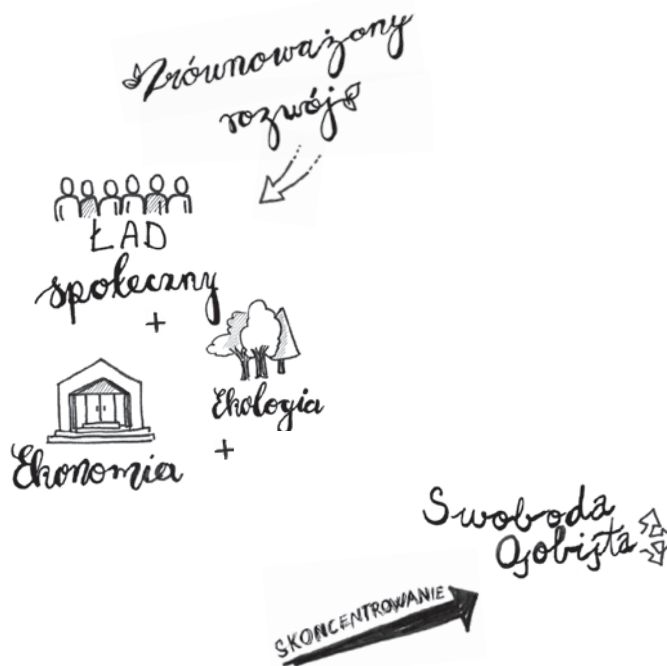 Zrównoważony
rozwój
ŁAD
społeczny
+
Ekologia
+
Ekonomia
Swoboda
Osobista
SKONCENTROWANIE